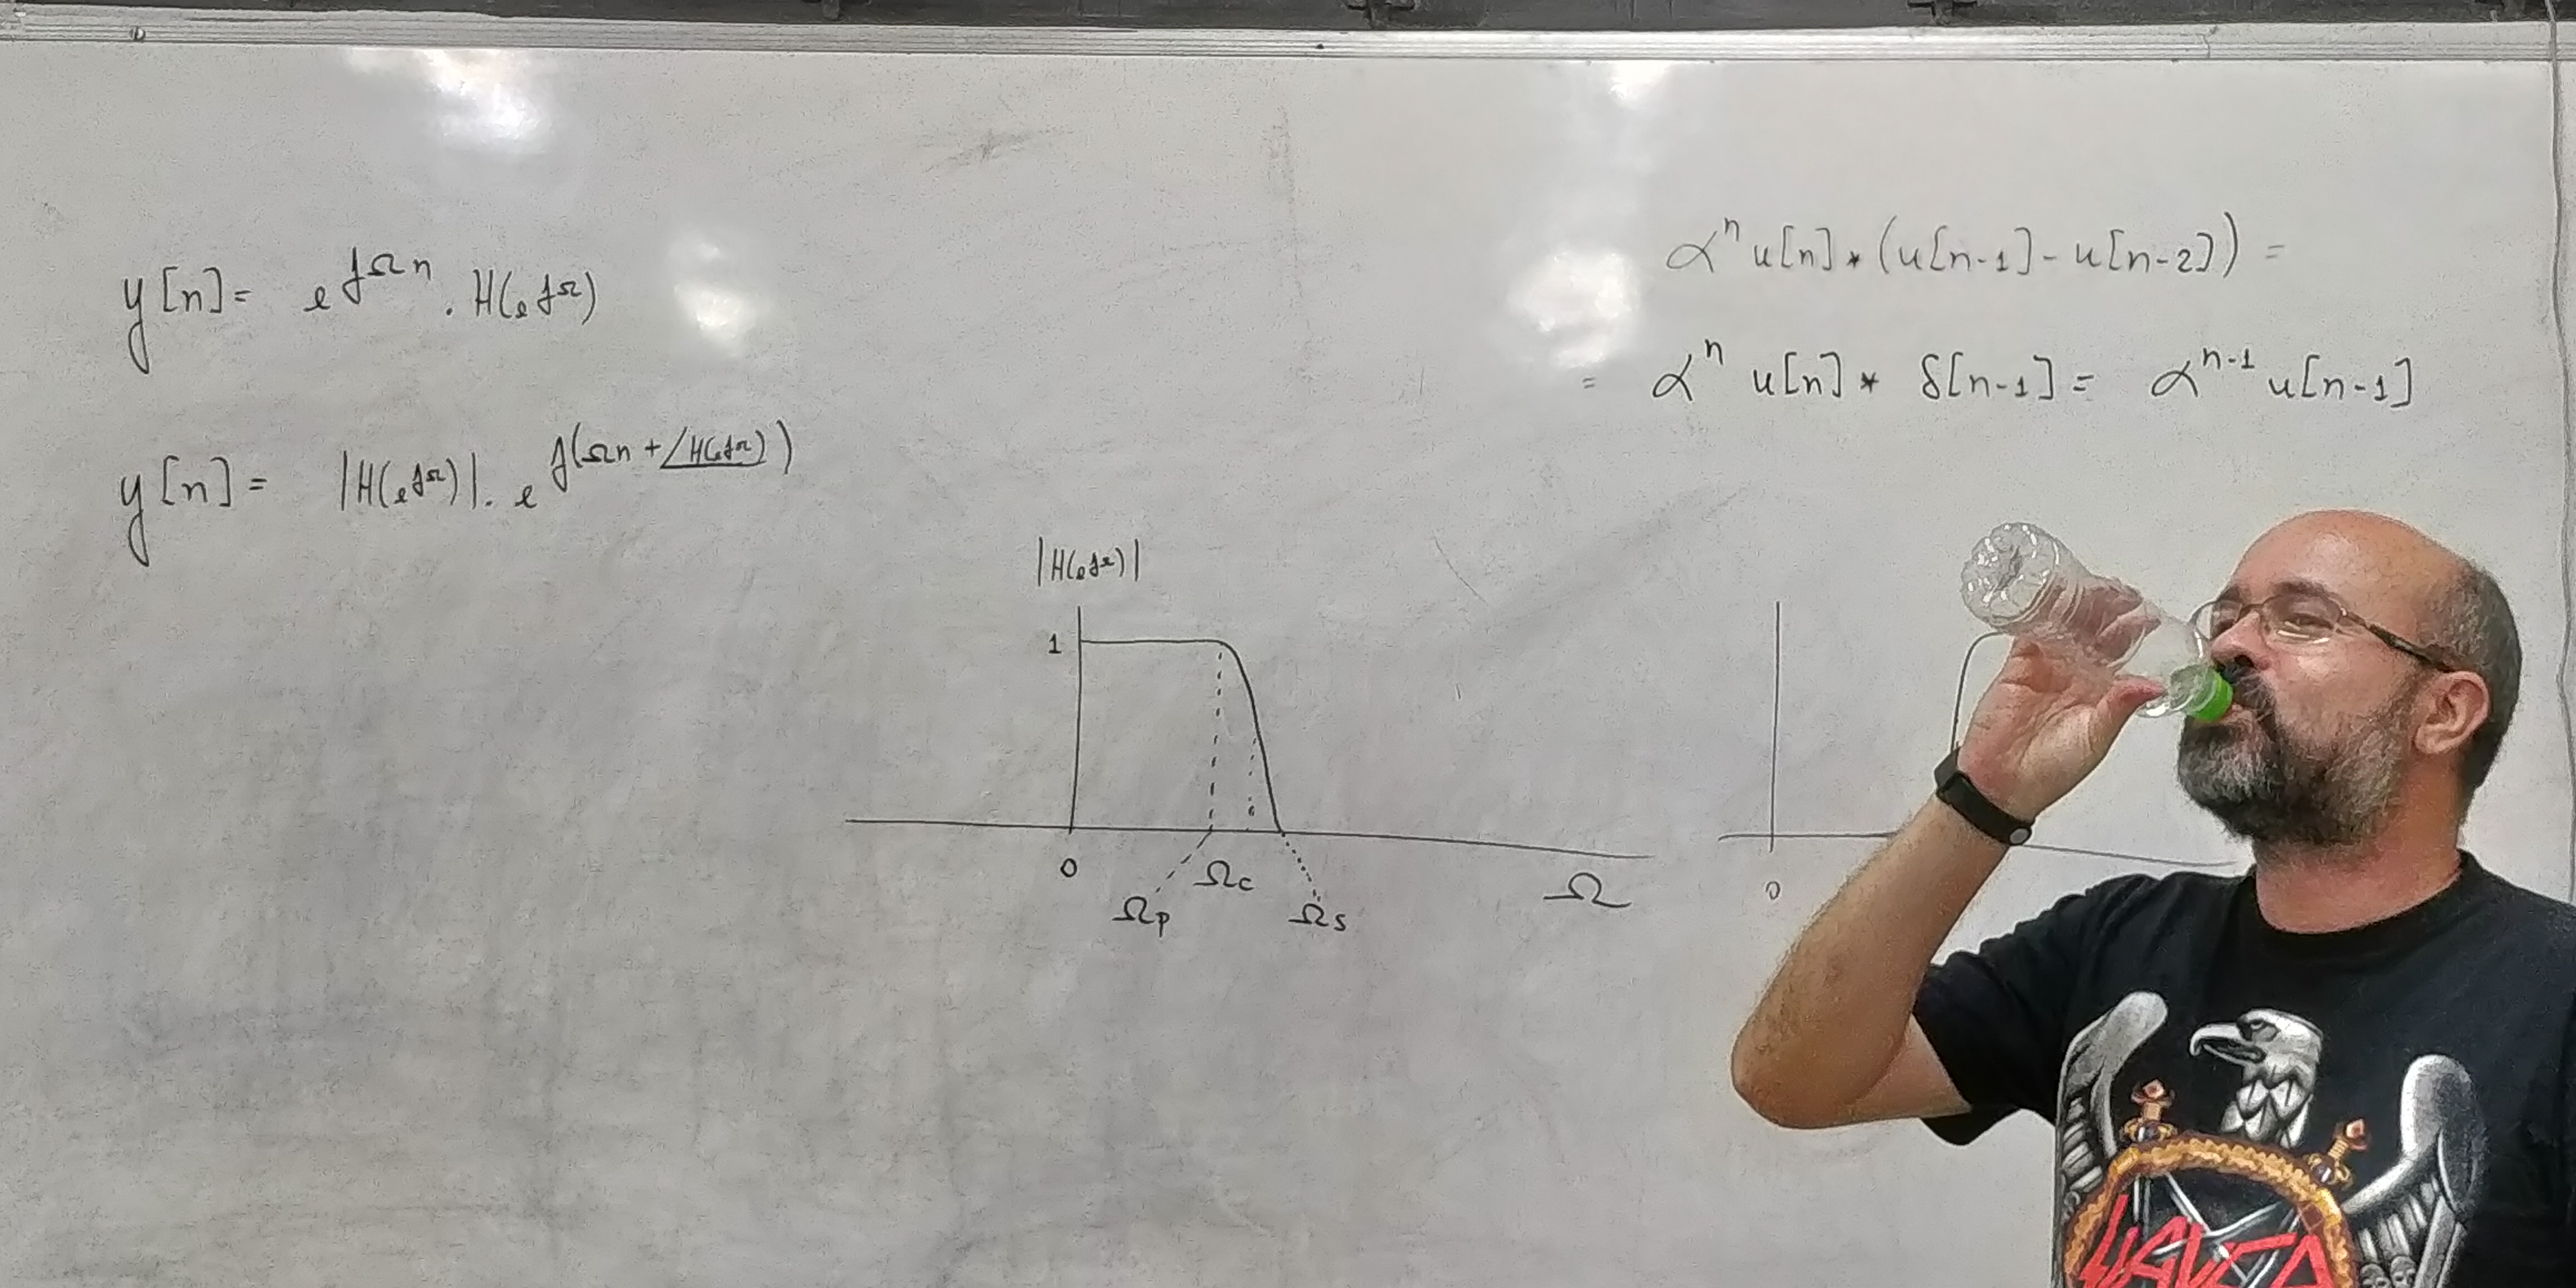 y[n] = e^{jΩn} . H(e^{jΩ})
y[n] = |H(e^{jΩ})| . e^{j(Ωn + ∠H(e^{jΩ}))}
α^n u[n] * (u[n-1] - u[n-2]) =
= α^n u[n] * δ[n-1] = α^{n-1} u[n-1]
|H(e^{jΩ})|
1
0 Ωc Ω
Ωp Ωs
0
SLAYER